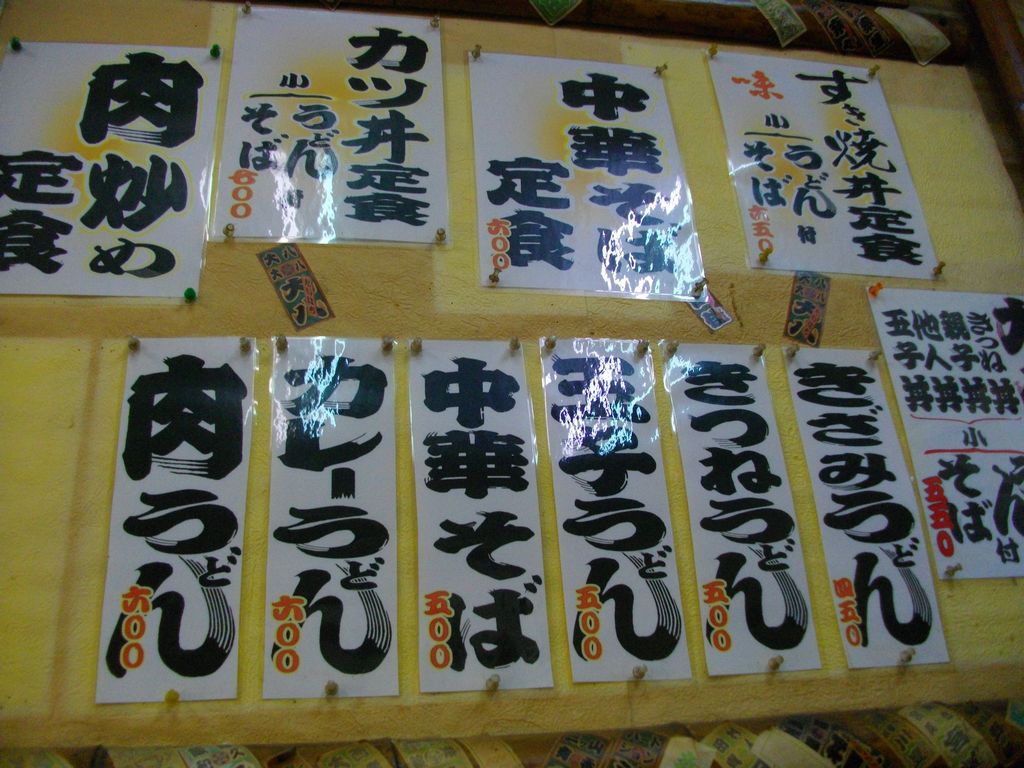 すき焼丼定食
味
小
うどん
そば
付
六五〇
中華そば
定食
六〇〇
カツ丼定食
小
うどん
そば
付
六〇〇
肉炒め
定食
きつね丼
親子丼
他人丼
玉子丼
小
そば
付
五五〇
きざみうどん
四五〇
きつねうどん
五〇〇
玉子うどん
五〇〇
中華そば
五〇〇
カレーうどん
六〇〇
肉うどん
六〇〇